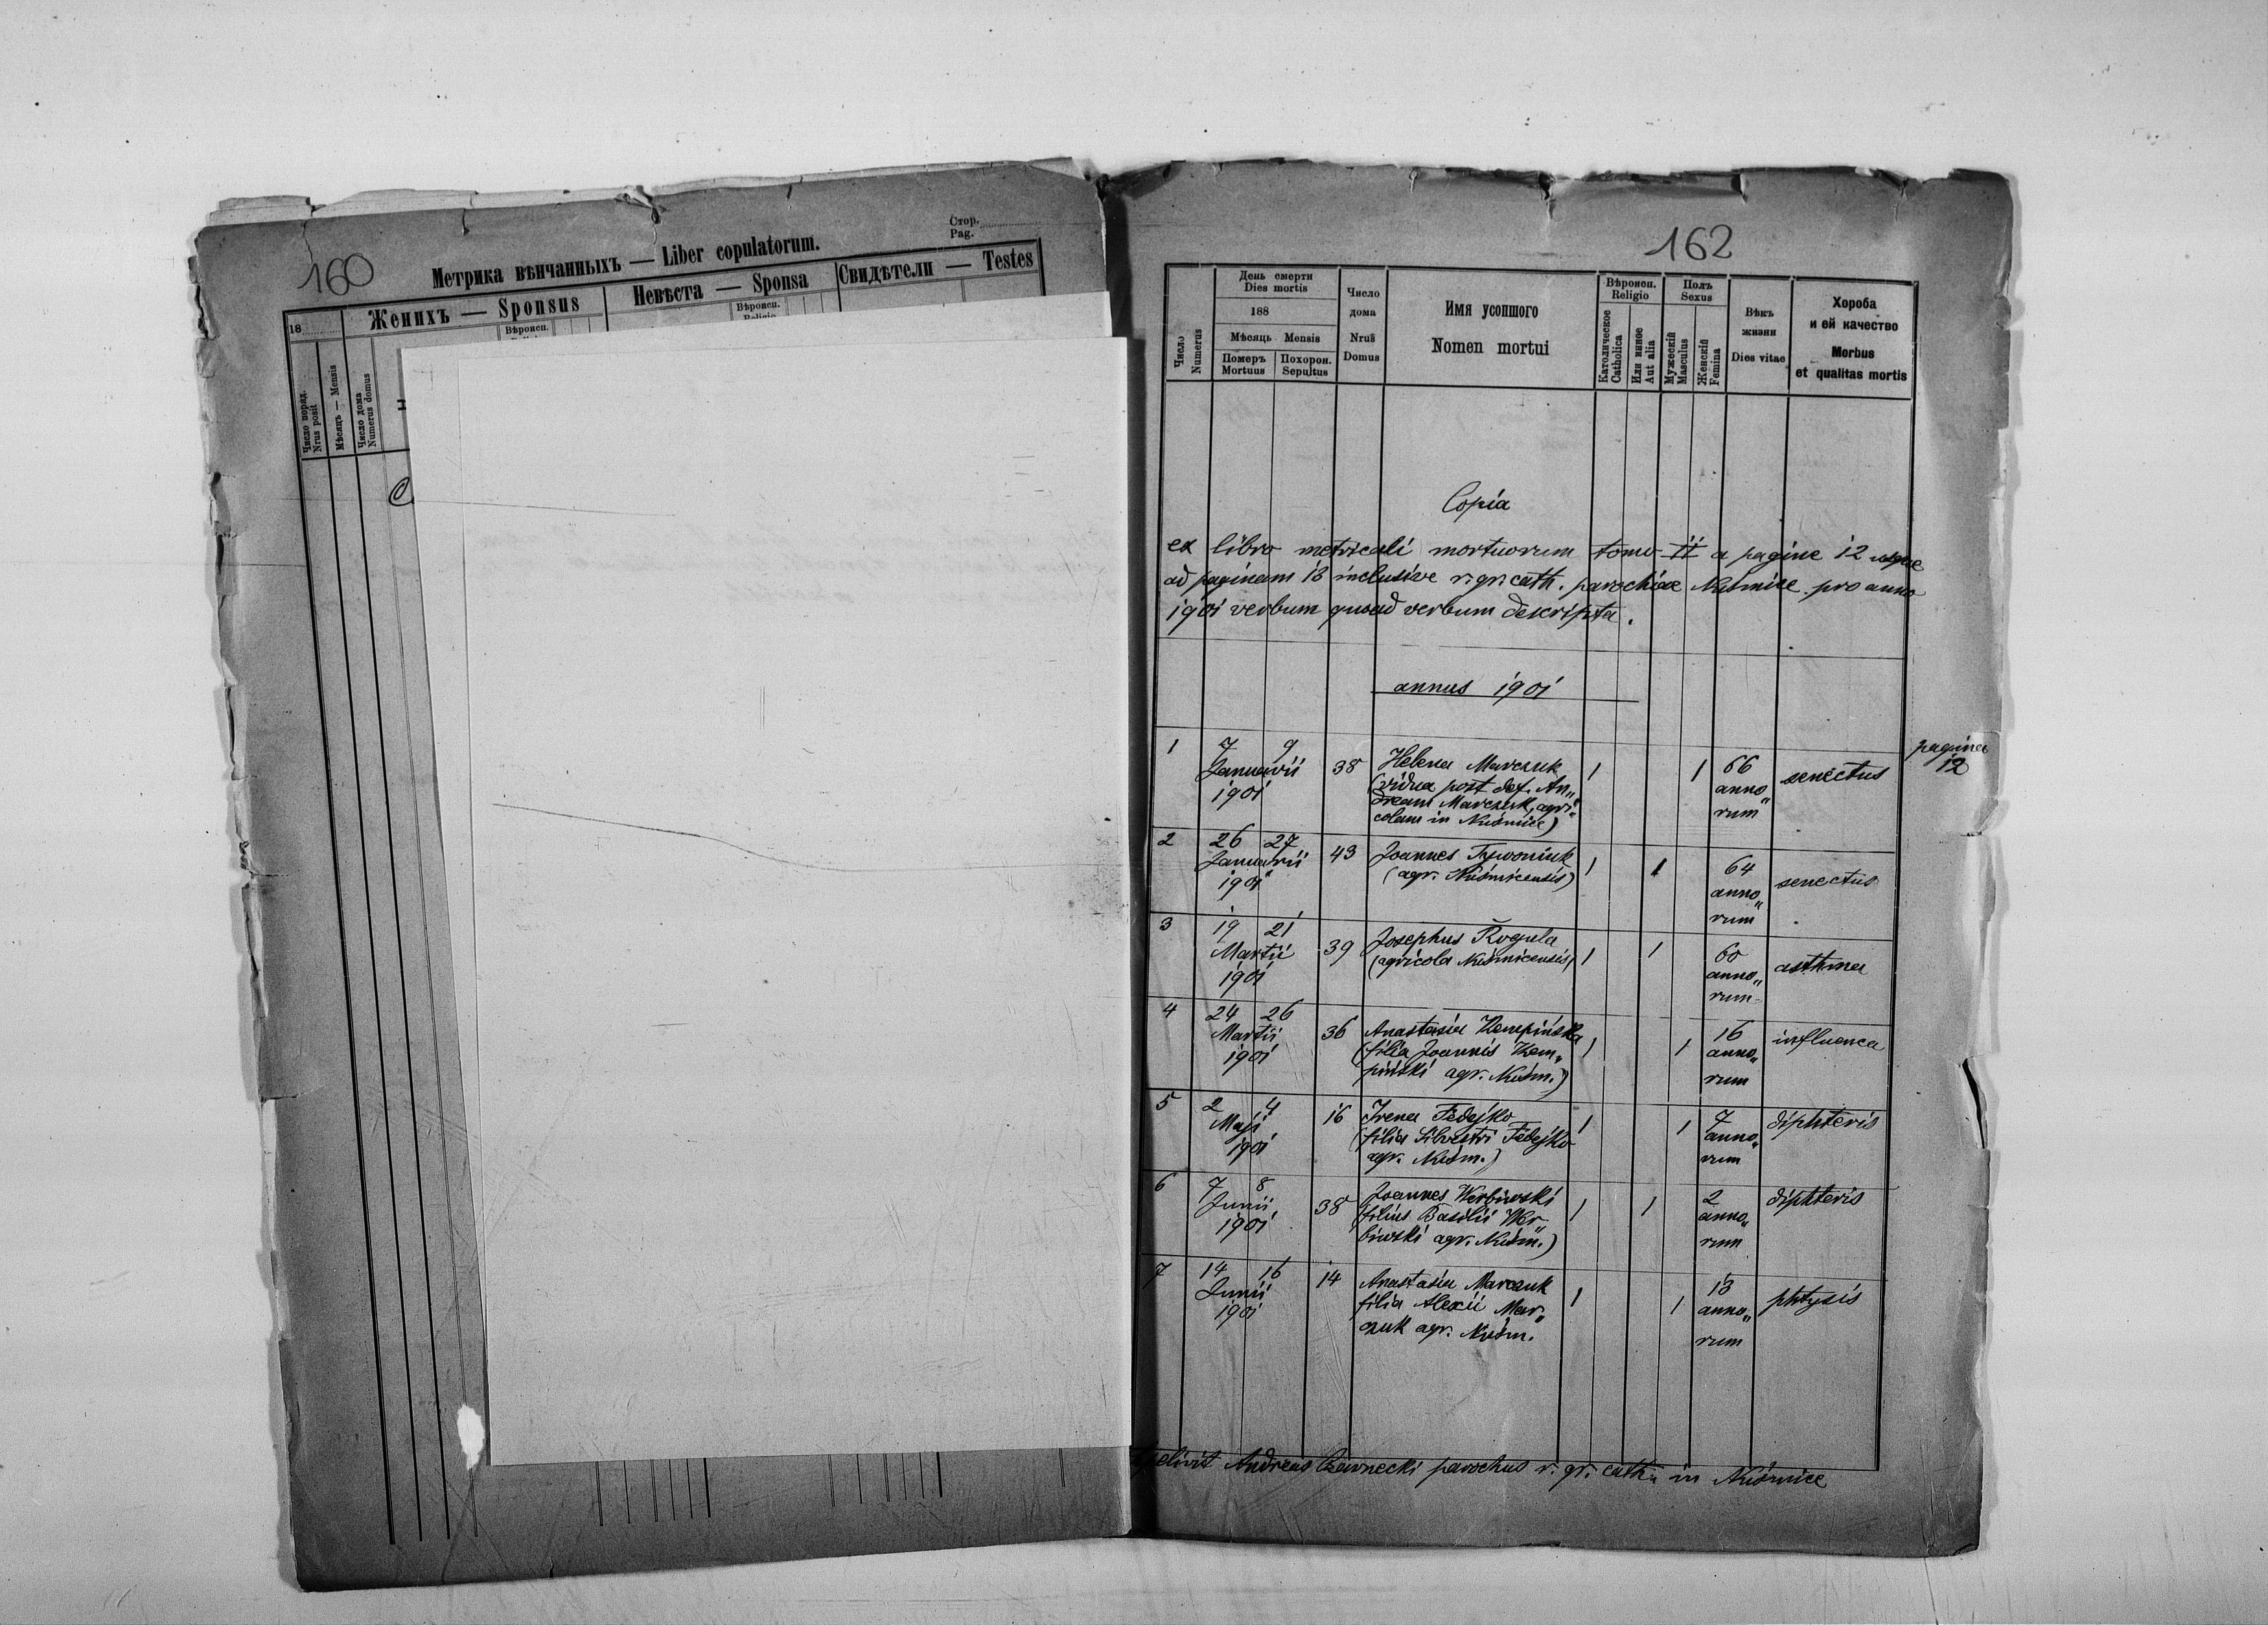 160
Метрика вѣнчанныхъ — Liber copulatorum.
Стор.
Pag.
18
Женихъ — Sponsus
Невѣста — Sponsa
Свидѣтели — Testes
Вѣроисп.
Вѣроисп.
Religio
Число поряд.
Nrus posit
Мѣсяць — Mensis
Число дома
Numerus domus
162
Число
Numerus
День смерти
Dies mortis
188
Мѣсяць Mensis
Померъ
Mortuus
Похорон.
Sepultus
Число
дома
Nrus
Domus
Имя усопшого
Nomen mortui
Вѣроисп.
Religio
Католическое
Catholica
Или иное
Aut alia
Полъ
Sexus
Мужескій
Masculus
Женскій
Femina
Вѣкъ
жизни
Dies vitae
Хороба
и ей качество
Morbus
et qualitas mortis
Copia
ex libro metricali mortuorum tomo II a pagine 12 usque
ad paginam 13 inclusive r. gr. cath. parochiae Kuśmice pro anno
1901 verbum quoad verbum descripta.
annus 1901
pagina
12
1 7 9 38 Helena Marczuk 1 1 66 senectus
Januarii (vidua post def. An„ anno„
1901 dream Marczuk, agri„ rum
colam in Kuśmice)
2 26 27 43 Joannes Tywoniuk 1 1 64 senectus
Januarii (agr. Kuśmicensis) anno„
1901 rum
3 19 21 39 Josephus Rogula 1 1 60 asthma
Martii (agricola Kuśmicensis) anno„
1901 rum
4 24 26 36 Anastasia Kempińska 1 1 16 influenca
Martii (filia Joannis Kem„ anno„
1901 piński agr. Kuśm.) rum
5 2 4 16 Irena Fedejko 1 1 7 diphteris
Maji (filia Silvestri Fedejko anno„
1901 agr. Kuśm.) rum
6 7 8 38 Joannes Werbiwski 1 1 2 diphteris
Junii (filius Basilii Wer„ anno„
1901 biwski agr. Kuśm.) rum
7 14 16 14 Anastasia Marczuk 1 1 13 phtysis
Junii filia Alexii Mar„ anno„
1901 czuk agr. Kuśm. rum
Andreas Czarnecki parochus r. gr. cath. in Kuśmice